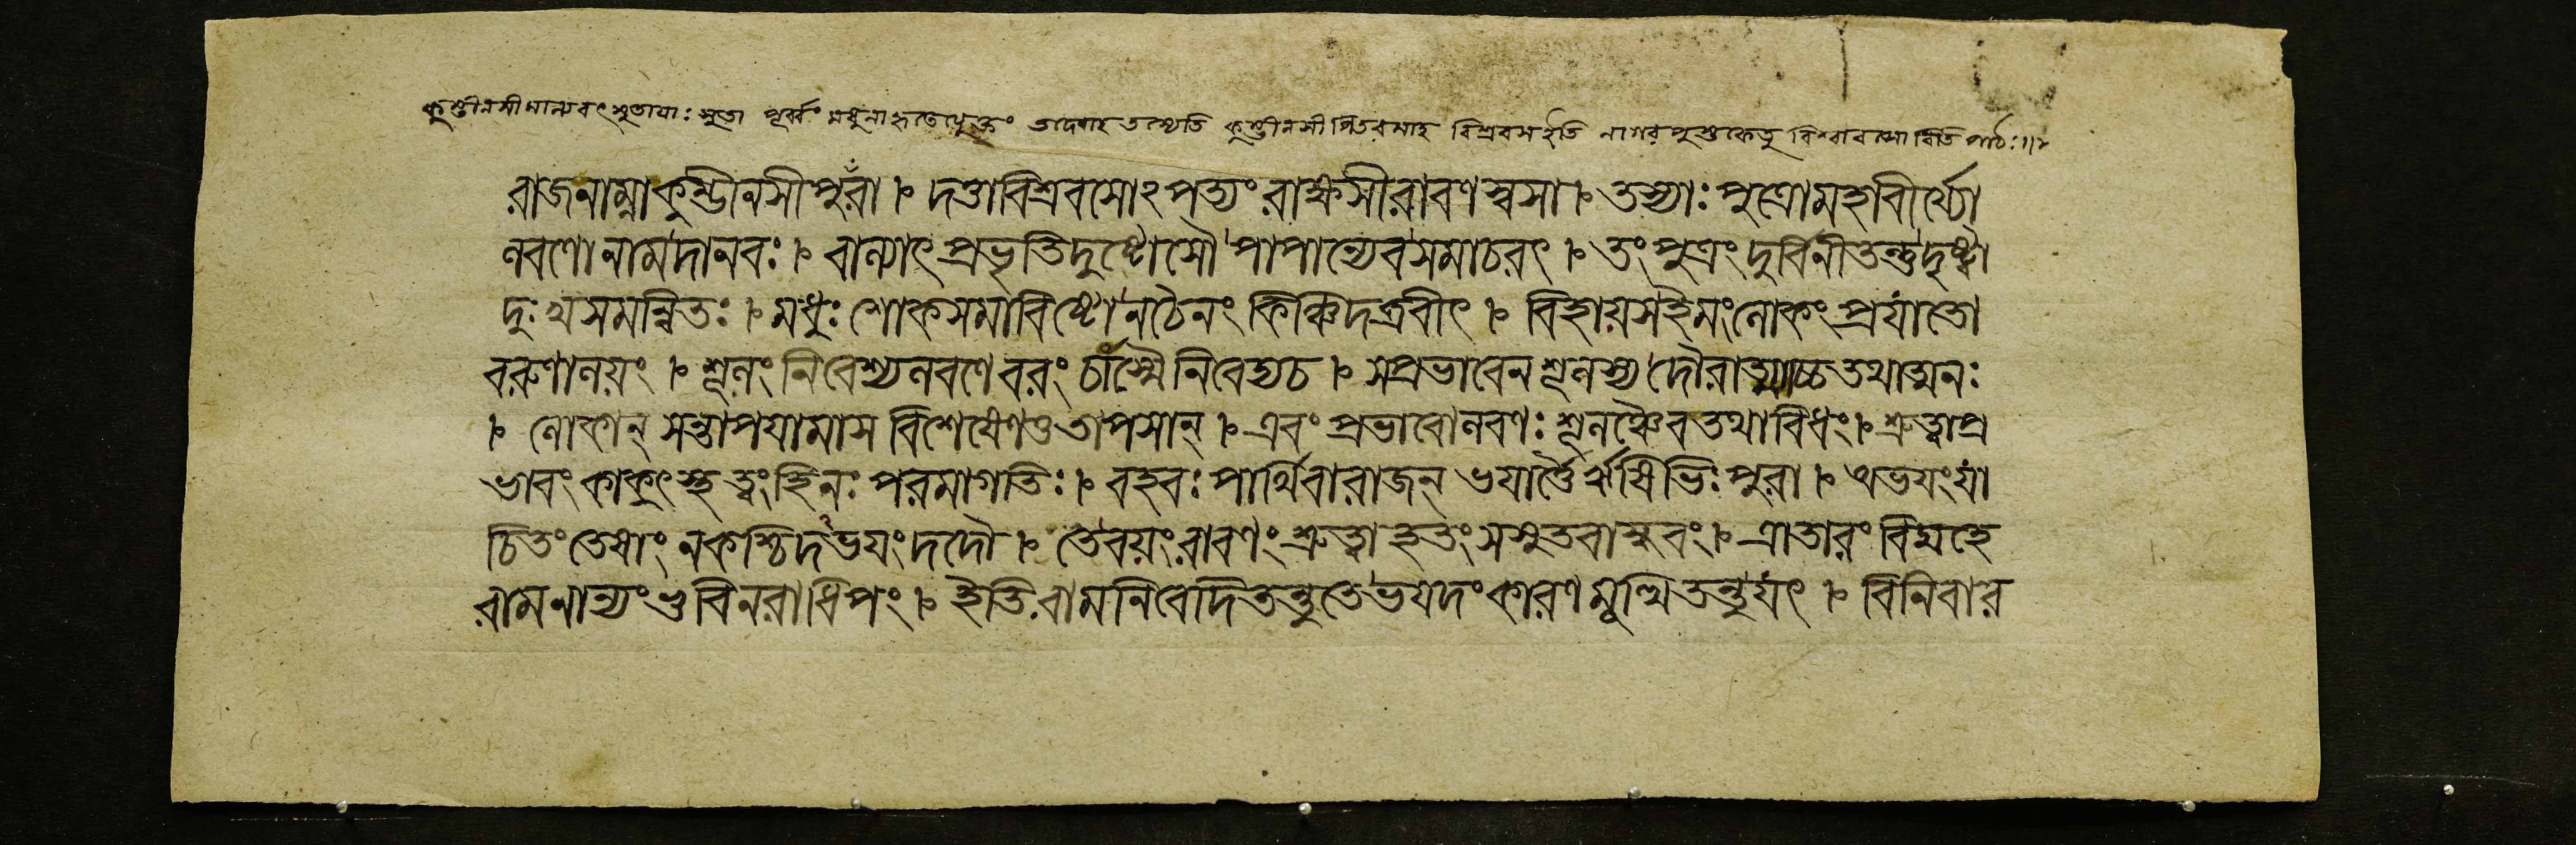 কুম্ভীনসী মাল্যবৎ সুতায়াঃ সুতা পূর্ব্বং মধুনা হৃতেত্যুক্তং তদেবাহ তস্যেতি কুম্ভীনসী পিতরমাহ বিশ্রবস ইতি নাগরপুস্তকেতু বিশ্বাবসোরিতি পাঠঃ॥
রাজনাম্নাকুম্ভীনসীপুরা । দত্তাবিশ্রবসোঽপত্যং রাক্ষসীরাবণস্বসা । তস্যাঃ পুত্রোমহাবীর্য্যো
লবণোনামদানবঃ । বাল্যাৎ প্রভৃতিদুষ্টোসৌ পাপান্যেবসমাচরৎ । তং পুত্রং দুর্বিনীতন্তুদৃষ্ট্বা
দুঃখসমন্বিতঃ । মধুঃ শোকসমাবিষ্টোনচৈনং কিঞ্চিদব্রবীৎ । বিহায়সইমংলোকং প্রযাতো
বরুণালয়ং । শূলং নিবেশ্যলবণে বরং চাস্মৈ নিবেদ্যচ । সপ্রভাবেন শূলস্য দৌরাত্ম্যাচ্চতথাত্মনঃ
। লোকান্ সন্তাপযামাস বিশেষেণতুতাপসান্ । এবং প্রভাবোলবণঃ শূলঞ্চৈবতথাবিধং । শ্রুত্বাপ্র
ভাবং কাকুৎস্থ ত্বংহিনঃ পরমাগতিঃ । বহবঃ পার্থিবারাজন্ ভযার্ত্তৈর্ঋষিভিঃ পুরা । অভযংযা
চিতংতেষাং নকশ্চিদভযংদদৌ । তেবয়ংরাবণং শ্রুত্বা হতং সসুতবান্ধবং । ত্রাতারং বিদ্মহে
রামনান্যং ভুবিনরাধিপং । ইতি রামনিবেদিতন্তুতেভযদং কারণমুত্থিতন্তুযৎ । বিনিবার